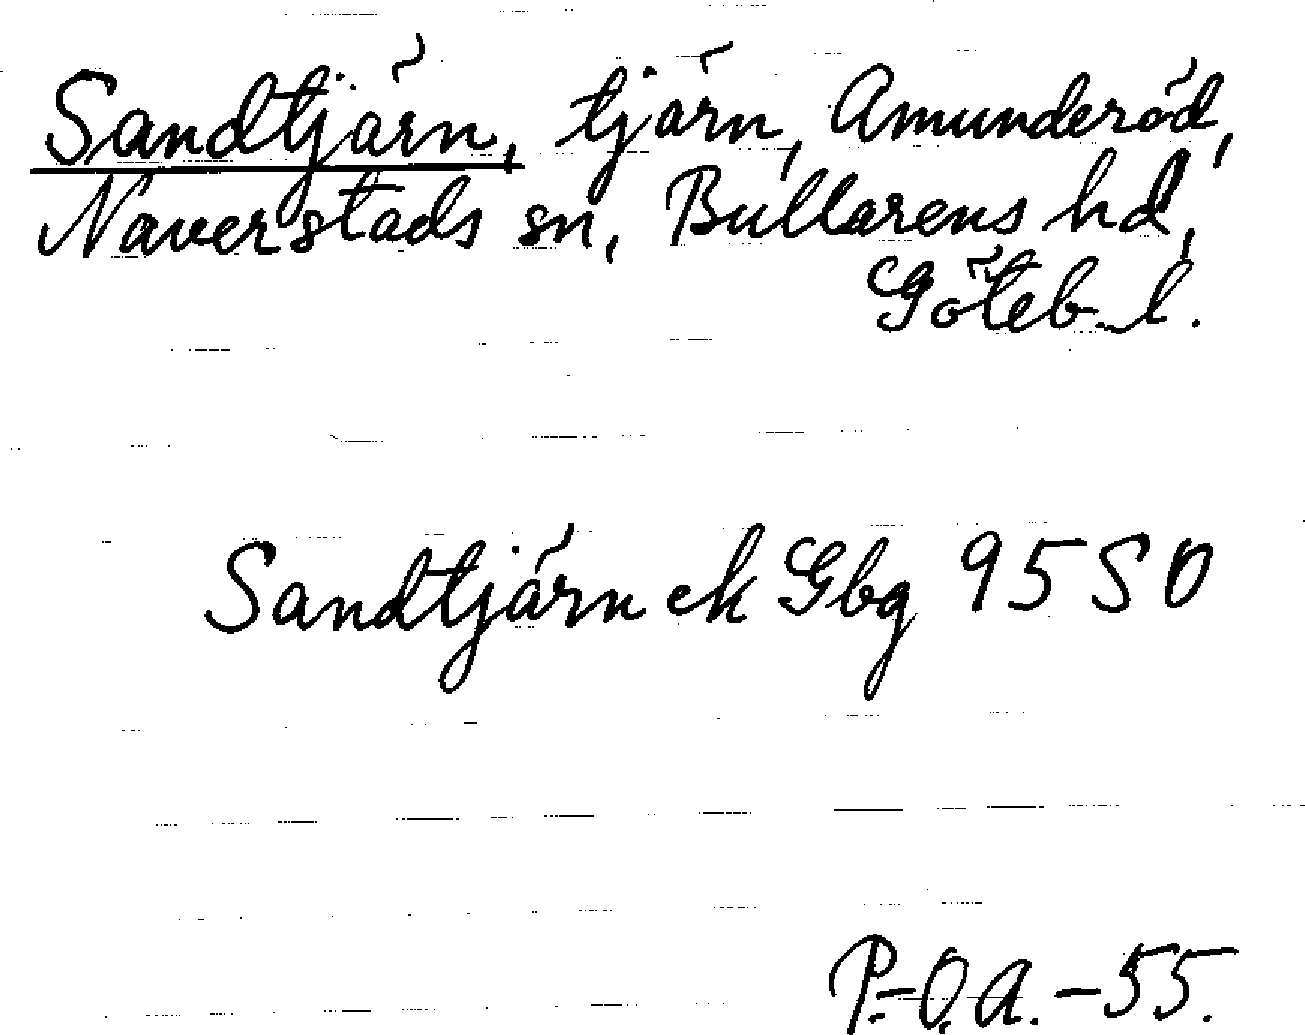 Sandtjärn, tjärn, Amunderöd,
Naverstads sn, Bullarens hd,
Göteb. l.
Sandtjärn ek Gbg 95 SO
P.-O.A. - 55.